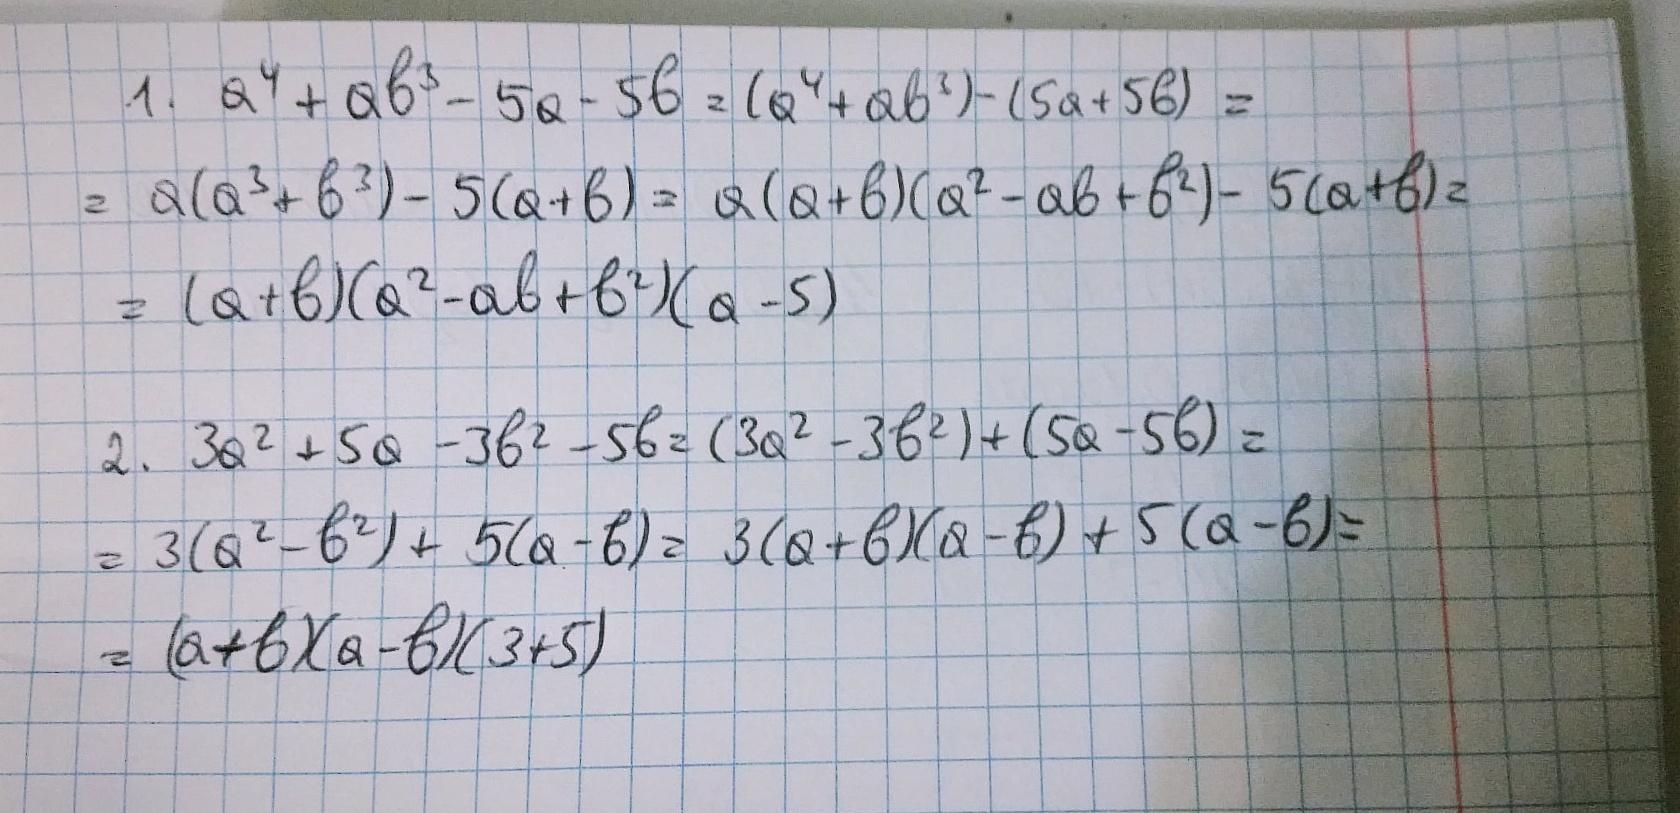 1. a⁴ + ab³ - 5a - 5b = (a⁴ + ab³) - (5a + 5b) =
= a(a³ + b³) - 5(a + b) = a(a + b)(a² - ab + b²) - 5(a + b) =
= (a + b)(a² - ab + b²)(a - 5)
2. 3a² + 5a - 3b² - 5b = (3a² - 3b²) + (5a - 5b) =
= 3(a² - b²) + 5(a - b) = 3(a + b)(a - b) + 5(a - b) =
= (a + b)(a - b)(3 + 5)